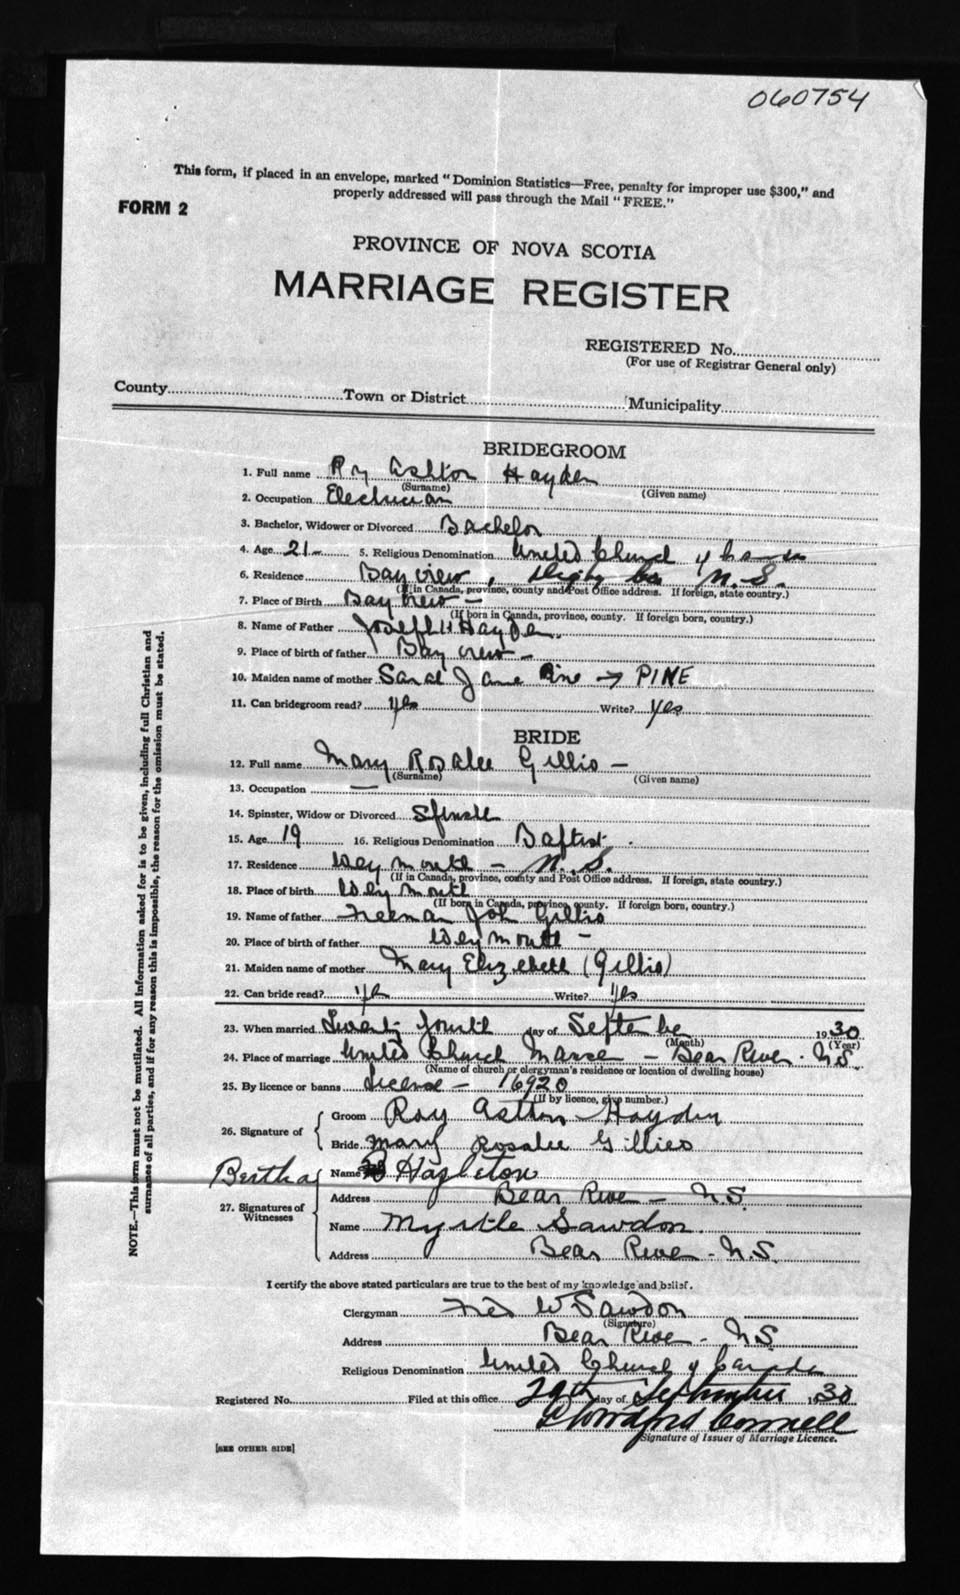 060754
This form, if placed in an envelope, marked "Dominion Statistics—Free, penalty for improper use $300," and
properly addressed will pass through the Mail "FREE."
FORM 2
PROVINCE OF NOVA SCOTIA
MARRIAGE REGISTER
REGISTERED No.
(For use of Registrar General only)
County Town or District Municipality
BRIDEGROOM
1. Full name Roy Ashton Hayden
(Surname) (Given name)
2. Occupation Electrician
3. Bachelor, Widower or Divorced Bachelor
4. Age 21 5. Religious Denomination United Church of
6. Residence Bay view, Digby Co N.S.
(If in Canada, province, county and Post Office address. If foreign, state country.)
7. Place of Birth Bay view –
(If born in Canada, province, county. If foreign born, country.)
8. Name of Father Joseph H Hayden
9. Place of birth of father Bay view –
10. Maiden name of mother Sarah Jane Pine → PINE
11. Can bridegroom read? yes Write? yes
BRIDE
12. Full name Mary Rosalee Gillis –
(Surname) (Given name)
13. Occupation —
14. Spinster, Widow or Divorced
15. Age 19 16. Religious Denomination Baptist
17. Residence Weymouth – N.S.
(If in Canada, province, county and Post Office address. If foreign, state country.)
18. Place of birth Weymouth
(If born in Canada, province, county. If foreign born, country.)
19. Name of father Freeman Gillis
20. Place of birth of father Weymouth –
21. Maiden name of mother Mary Elizabeth (Gillis)
22. Can bride read? yes Write? yes
23. When married Twenty fourth day of September 1930
(Month) (Year)
24. Place of marriage United Church Manse – Bear River. N.S.
(Name of church or clergyman's residence or location of dwelling house)
25. By licence or banns License – 16920
(If by licence, give number.)
26. Signature of
Groom Roy Ashton Hayden
Bride Mary Rosalee Gillies
27. Signatures of Witnesses
Name Bertha Hazleton
Address Bear River – N.S.
Name Myrtle Sawdon
Address Bear River – N.S.
I certify the above stated particulars are true to the best of my knowledge and belief.
Clergyman W Sawdon
(Signature)
Address Bear River – N.S.
Religious Denomination United Church of Canada
Registered No. Filed at this office 29th day of September 1930
Connell
Signature of Issuer of Marriage Licence.
[SEE OTHER SIDE]
NOTE.—This form must not be mutilated. All information asked for is to be given, including full Christian and
surnames of all parties, and if for any reason this is impossible, the reason for the omission must be stated.